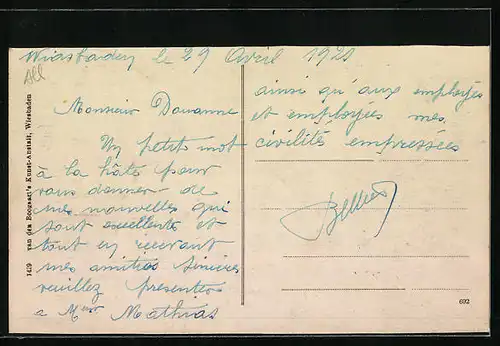 Wiesbaden le 29 Avril 1921
All
Monsieur Davanne
Un petit mot
à la hâte pour
vous donner de
mes nouvelles qui
sont excellents et
tout en recevant
mes amitiés sincères
veuillez presenter
a Mme Mathias
ainsi qu'aux employés
et employées mes
civilités empressées
1419 van den Boogaart's Kunst-Anstalt, Wiesbaden
692